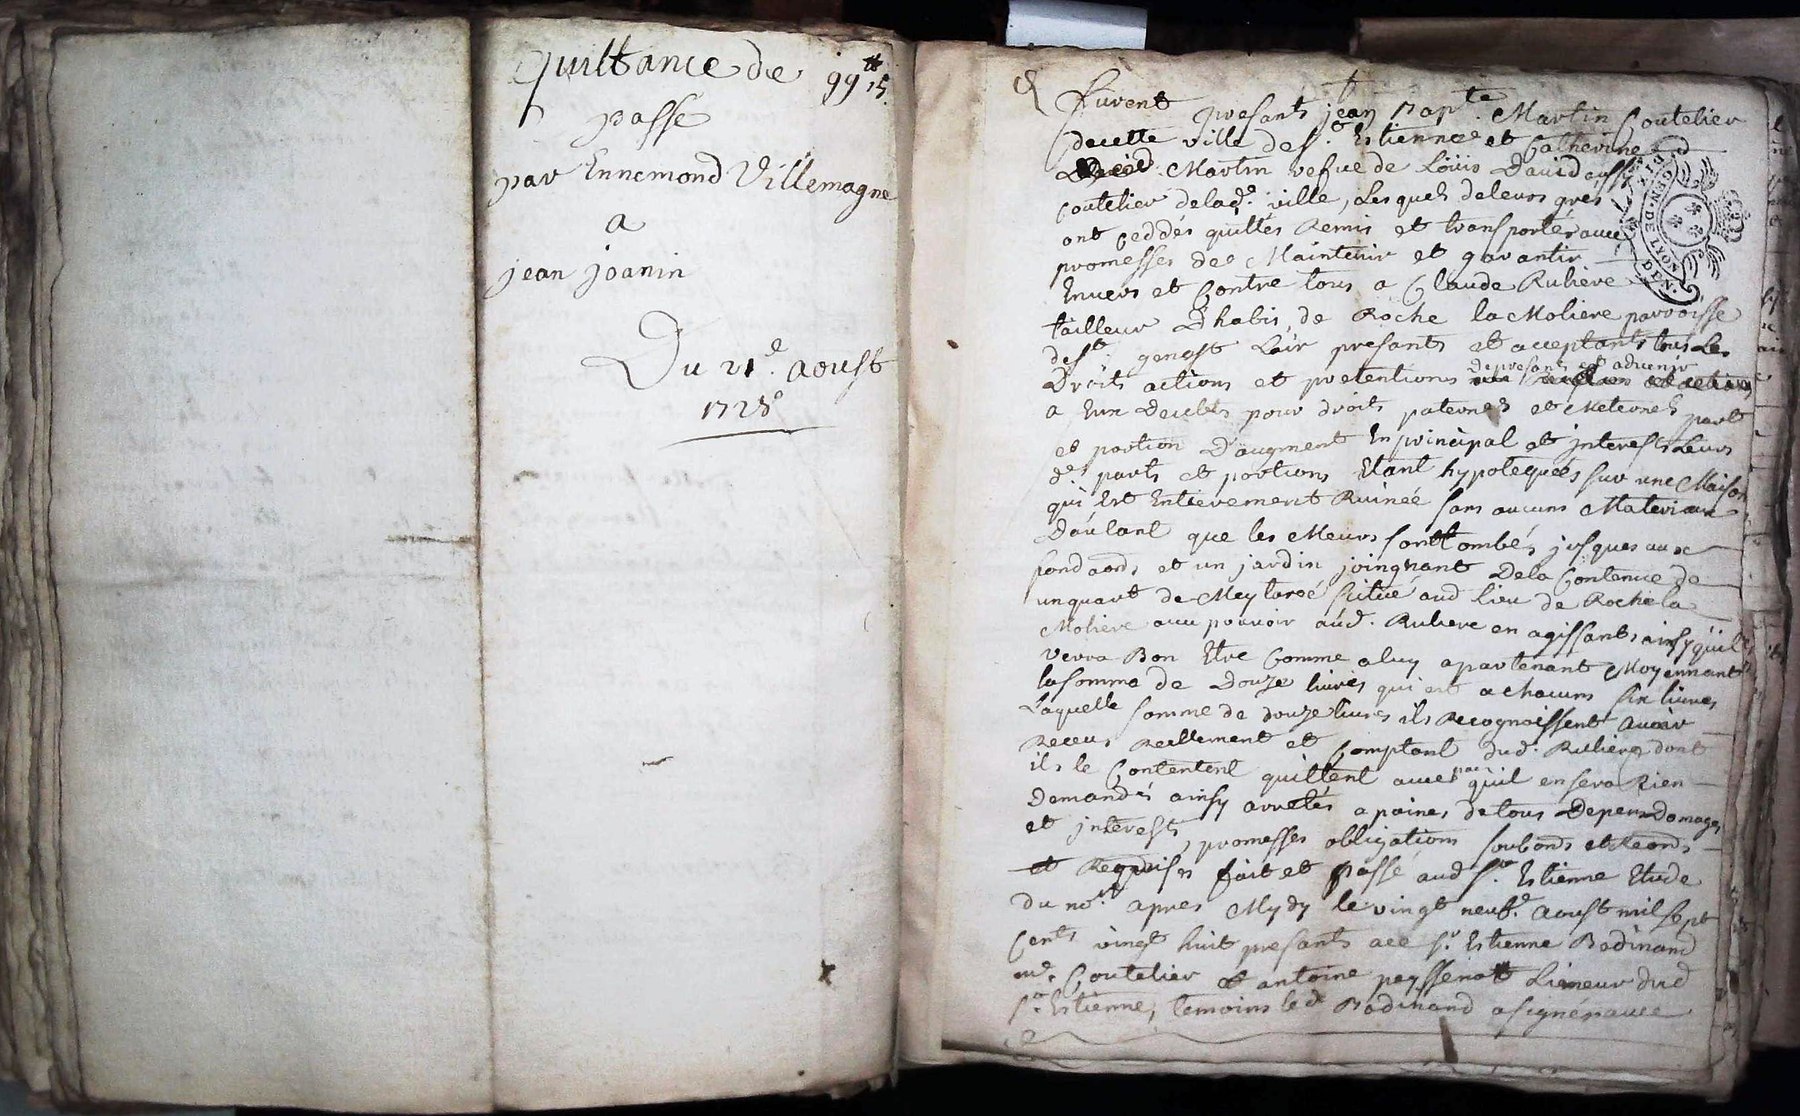 quittance de 99# 15.
passé
par Ennemond Villemagne
a
jean joanin
Du 21e. aoust
1728
furent presants jean Bapte. Martin Coutelier
de cette ville de St. Estienne et Catherine
Martin vefue de Loüis Dauid aussy
coutelier de lade. ville, Lesquels de leurs grés
ont ceddés quittés Remis et transportés auec
promesses de Maintenir et garantir
Enuers et Contre tous a Claude Ruliere
tailleur D'habis, de Roche la Moliere parroisse
de St. genest Lair presants et acceptants tous Les
Droits actions et pretentions
de presants et aduenir
a Eux pour droits paternels et Maternels part
et portion D'augment En principal et jnterests Leurs
des. parts et portions Etant hypotequées sur une Maison
qui Est Entierement Ruinée sans aucuns Materiaux
D'autant que les Meurs sont tombés jusques aux
fondaons et un jardin joingnant De la Contenue de
un quart de Meyterée scitué aud lieu de Roche la
Moliere auec pouuoir aud. Ruliere en agissants ainsy qu'il
verra Bon Etre Comme a luy apartenant Moyennant
la somme de Douze liures qui est a chacuns six liures
Laquelle somme de douze liures ils Recognoissent auoir
Receus Reellement et Comptant dud. Ruliere dont
ils se Contentent quittent auec pae. qu'il en sera Rien
Demandés ainsy arretés a paines de tous Depens Domages
et jnterests, promesses obligations soubons et Reons
et Requises fait et Passé aud St. Estienne Etude
du nore. apres Mydy le vingt neufe. aoust mil sept
Cents vingt huit presants a ce Sr. Estienne Badinand
me. Coutelier et antoine peyssenott Limeur dud
St. Estienne, temoins led Badinand a signé auec
GEN. DE LYON
DEN.